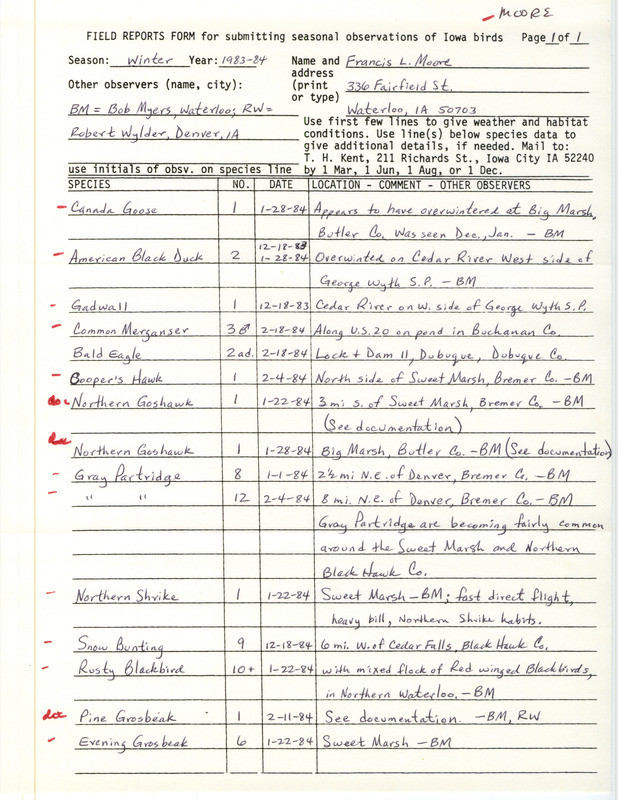 MOORE
FIELD REPORTS FORM for submitting seasonal observations of Iowa birds Page 1 of 1
Season: Winter Year: 1983-84 Name and Francis L. Moore
address
Other observers (name, city): (print 336 Fairfield St.
or type)
BM = Bob Myers, Waterloo; RW= Waterloo, IA 50703
Robert Wylder, Denver, IA Use first few lines to give weather and habitat
conditions. Use line(s) below species data to
give additional details, if needed. Mail to:
T. H. Kent, 211 Richards St., Iowa City IA 52240
use initials of obsv. on species line by 1 Mar, 1 Jun, 1 Aug, or 1 Dec.
SPECIES NO. DATE LOCATION - COMMENT - OTHER OBSERVERS
Canada Goose 1 1-28-84 Appears to have overwintered at Big Marsh,
Butler Co. Was seen Dec., Jan. - BM
12-18-83
American Black Duck 2 1-28-84 Overwinted on Cedar River West side of
George Wyth S.P. - BM
Gadwall 1 12-18-83 Cedar River on W. side of George Wyth S.P.
Common Merganser 3♂ 2-18-84 Along U.S. 20 on pond in Buchanan Co.
Bald Eagle 2ad. 2-18-84 Lock + Dam 11, Dubuque, Dubuque Co.
Cooper's Hawk 1 2-4-84 North side of Sweet Marsh, Bremer Co. -BM
doc Northern Goshawk 1 1-22-84 3 mi s. of Sweet Marsh, Bremer Co. - BM
(See documentation)
Northern Goshawk 1 1-28-84 Big Marsh, Butler Co. -BM (See documentation)
Gray Partridge 8 1-1-84 2½ mi N.E. of Denver, Bremer Co. -BM
" " 12 2-4-84 8 mi. N.E. of Denver, Bremer Co. - BM
Gray Partridge are becoming fairly common
around the Sweet Marsh and Northern
Black Hawk Co.
Northern Shrike 1 1-22-84 Sweet Marsh - BM; fast direct flight,
heavy bill, Northern Shrike habits.
Snow Bunting 9 12-18-84 6 mi. W. of Cedar Falls, Black Hawk Co.
Rusty Blackbird 10+ 1-22-84 with mixed flock of Red winged Blackbirds,
in Northern Waterloo. - BM
doc Pine Grosbeak 1 2-11-84 See documentation. -BM, RW
Evening Grosbeak 6 1-22-84 Sweet Marsh - BM